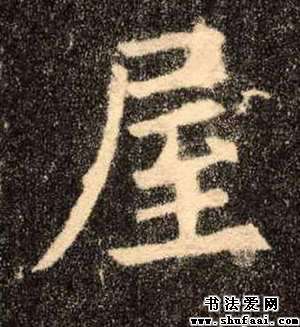 屋
书法爱网
www.shufaai.com